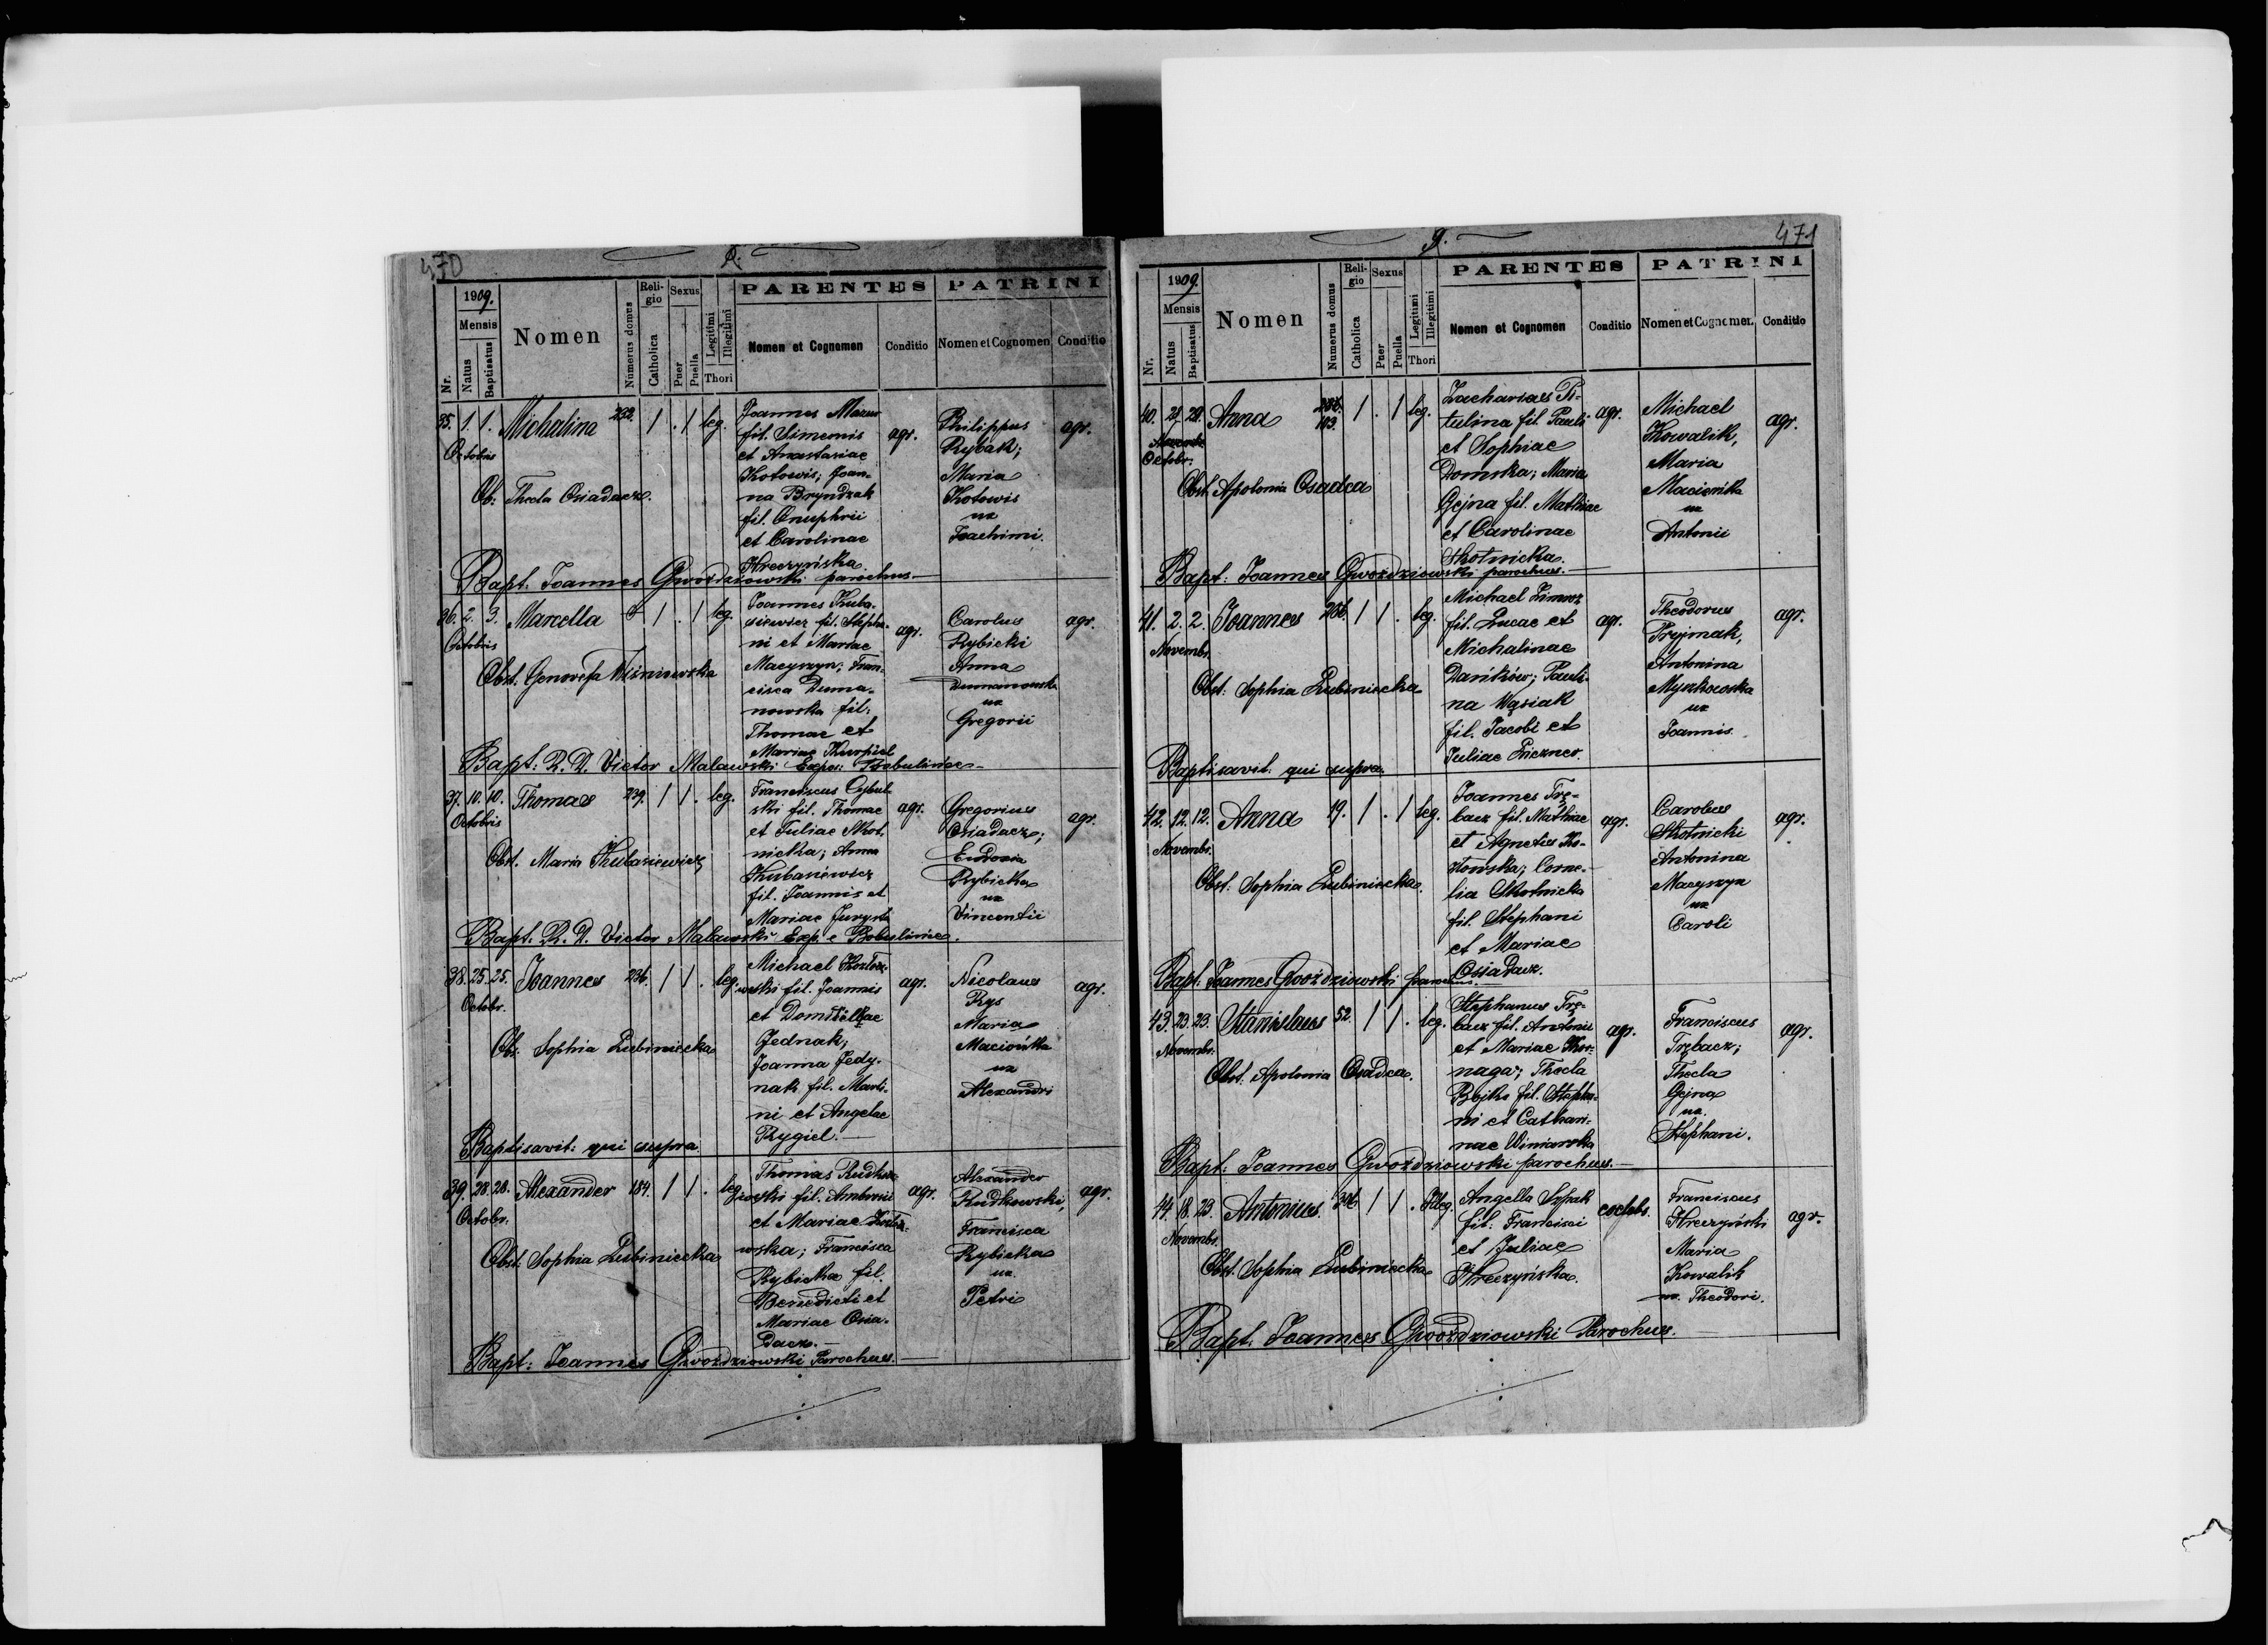 470
8.
1909.
Mensis
Nr.
Natus
Baptisatus
Nomen
Numerus domus
Religio
Catholica
Sexus
Puer
Puella
Legitimi
Illegitimi
Thori
PARENTES
Nomen et Cognomen
Conditio
PATRINI
Nomen et Cognomen
Conditio
35. 1. 1. Michalina 232. 1 . 1 leg.
Octobris
Joannes Mazur
fil. Simeonis
et Anastasiae
Kotowis; Joan-
na Bryndzak
fil. Onuphrii
et Carolinae
Hreczyńska.
agr.
Philippus
Rybak;
Maria
Kotowis
ux
Joachimi.
agr.
Ob: Thecla Osiadacz.
Bapt. Joannes Gwoździowski parochus
36. 2. 3. Marcella 1 . 1 leg.
Octobris
Joannes Kuba-
siewicz fil. Stepha-
ni et Mariae
Macyszyn; Fran-
cisca Duma-
nowska fil.
Thomae et
Mariae Kurpiel
agr.
Carolus
Rybicki
Anna
Dumanowska
ux
Gregorii
agr.
Obst. Genovefa Wiśniowska
Bapt: R. D. Victor Malawski Expos: Bobulince
37. 10. 10. Thomas 239. 1 1 . leg.
Octobris
Franciscus Cybul-
ski fil. Thomae
et Juliae Skot-
nicka; Anna
Kubasiewicz
fil. Joannis et
Mariae
agr.
Gregorius
Osiadacz;
Eudoxia
Rybicka
ux
Vincentii
agr.
Obst. Maria Kubasiewicz
Bapt. R. D. Victor Malawski Exp. e Bobulince.
38. 25. 25. Joannes 236. 1 1 . leg.
Octobr.
Michael Kozłow-
wski fil. Joannis
et Domitillae
Jednak;
Joanna Jedy-
nak fil. Marti-
ni et Angelae
Rygiel.
agr.
Nicolaus
Rys
Maria
Maciońka
ux
Alexandri
agr.
Ob: Sophia Lubiniecka
Baptisavit: qui supra
39. 28. 28. Alexander 184. 1 1 . leg.
Octobr.
Thomas Rudko-
wski fil. Ambrosii
et Mariae Kozło-
wska; Francisca
Rybicka fil.
Benedicti et
Mariae Osia-
dacz.
agr.
Alexander
Rudkowski,
Francisca
Rybicka
ux.
Petri
agr.
Obst. Sophia Lubiniecka
Bapt: Joannes Gwoździowski Parochus.
471
9.
1909.
Mensis
Nr.
Natus
Baptisatus
Nomen
Numerus domus
Religio
Catholica
Sexus
Puer
Puella
Legitimi
Illegitimi
Thori
PARENTES
Nomen et Cognomen
Conditio
PATRINI
Nomen et Cognomen
Conditio
40. 28. 28. Anna 1 . 1 leg.
Octobr.
Zacharias Pi-
tulina fil. Pauli
et Sophiae
Domska; Maria
Gejna fil. Mathiae
et Carolinae
Skotnicka.
agr.
Michael
Kowalik,
Maria
Macionka
ux
Antonii
agr.
Obst. Apolonia Osadca
Bapt: Joannes Gwoździowski parochus.
41. 2. 2. Joannes 1 1 . leg.
Novembr.
Michael Zimroz
fil. Lucae et
Michalinae
Dańków; Pauli-
na Wąsiak
fil. Jacobi et
Juliae
agr.
Theodorus
Pryjmak,
Antonina
Myszkowska
ux
Joannis.
agr.
Obst: Sophia Lubiniecka
Baptisavit: qui supra.
42. 12. 12. Anna 19. 1 . 1 leg.
Novembr.
Joannes Trę-
bacz fil. Mathiae
et Agnetis Ko-
złowska; Corne-
lia Skotnicka
fil. Stephani
et Mariae
Osiadacz.
agr.
Carolus
Skotnicki
Antonina
Macyszyn
ux
Caroli
agr.
Obst. Sophia Lubiniecka.
Bapt: Joannes Gwoździowski parochus.
43. 23. 23. Stanislaus 52. 1 1 . leg.
Novembr.
Stephanus Trę-
bacz fil. Antonii
et Mariae Kor-
naga; Thecla
Bojko fil. Stepha-
ni et Cathari-
nae Winiarska
agr.
Franciscus
Trębacz;
Thecla
Gejna
ux.
Stephani.
agr.
Obst. Apolonia Osadca.
Bapt: Joannes Gwoździowski parochus.
44. 18. 23. Antonius. 306. 1 1 . Illeg.
Novembr.
Angella Sypak
fil. Francisci
et Juliae
Hreczyńska.
Franciscus
Hreczyński
Maria
Kowalik
ux. Theodori.
agr.
Obst. Sophia Lubiniecka
Bapt. Joannes Gwoździowski Parochus.